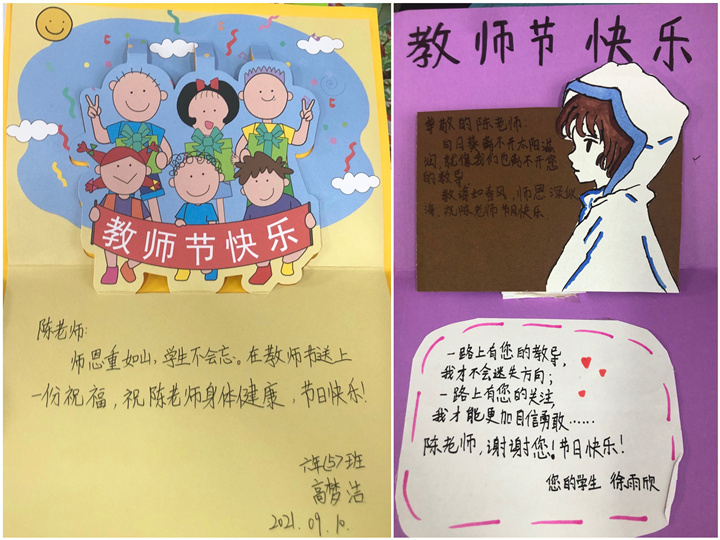 教师节快乐
陈老师:
师恩重如山,学生不会忘。在教师节送上
一份祝福,祝陈老师身体健康,节日快乐!
六年(5)班
高梦洁
2021.09.10.
教师节快乐
尊敬的陈老师:
向日葵离不开太阳滋
润,就像我们也离不开您
的教导
教诲如春风,师恩深似
海,祝陈老师节日快乐
一路上有您的教导,
我才不会迷失方向;
一路上有您的关注,
我才能更加自信勇敢……
陈老师,谢谢您!节日快乐!
您的学生 徐雨欣